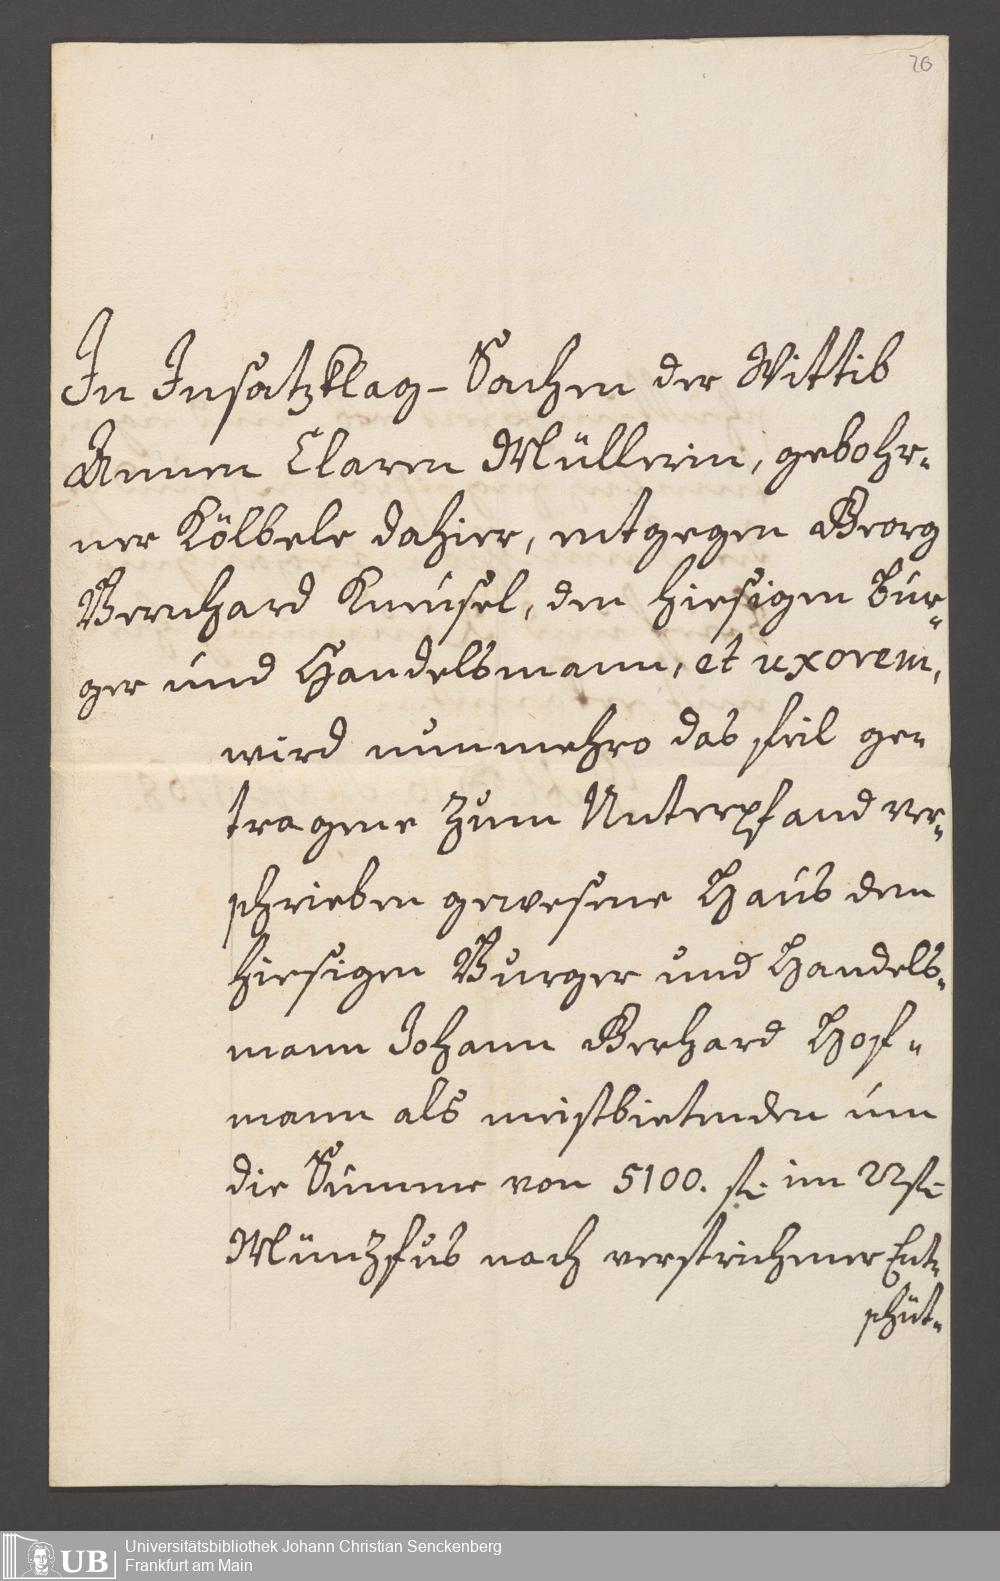 26
In Insatzklag-Sachen der Wittib
Annen Claren Müllerin, gebohr-
ner Kölbele dahier, entgegen Georg
Bernhard Kneusel, den hiesigen Bur-
ger und Handelsmann, et uxorem,
wird nunmehro das feil ge-
tragene zum Unterpfand ver-
schrieben gewesene Haus dem
hiesigen Burger und Handels-
mann Johann Gerhard Hof-
mann als meistbietenden um
die Summe von 5100. fl: im 22 fl:
Münzfus nach verstrichener Ent-
schüt-
UB
Universitätsbibliothek Johann Christian Senckenberg
Frankfurt am Main